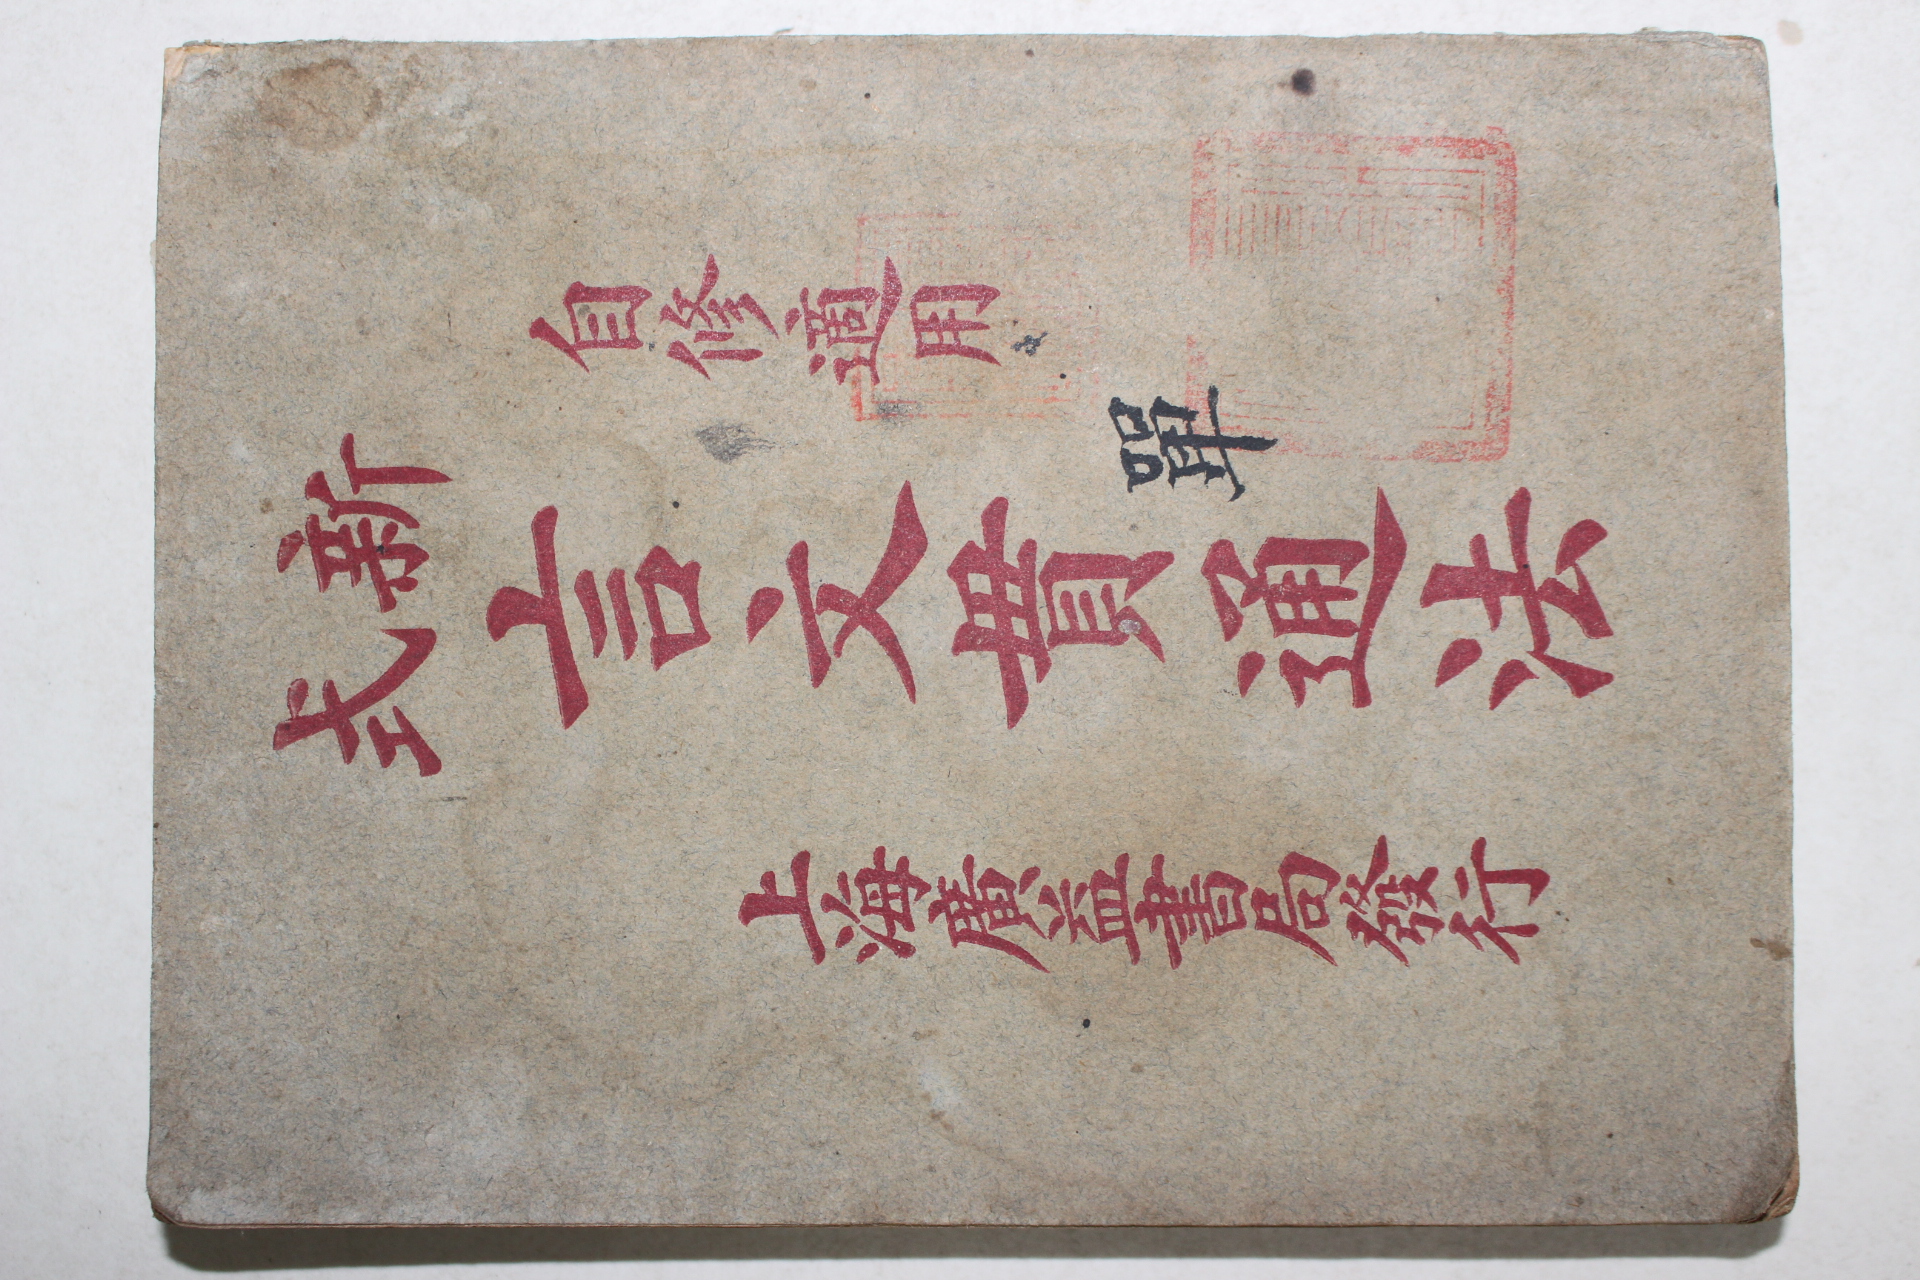 自修適用
單
新式
言文貫通法
上海廣益書局發行